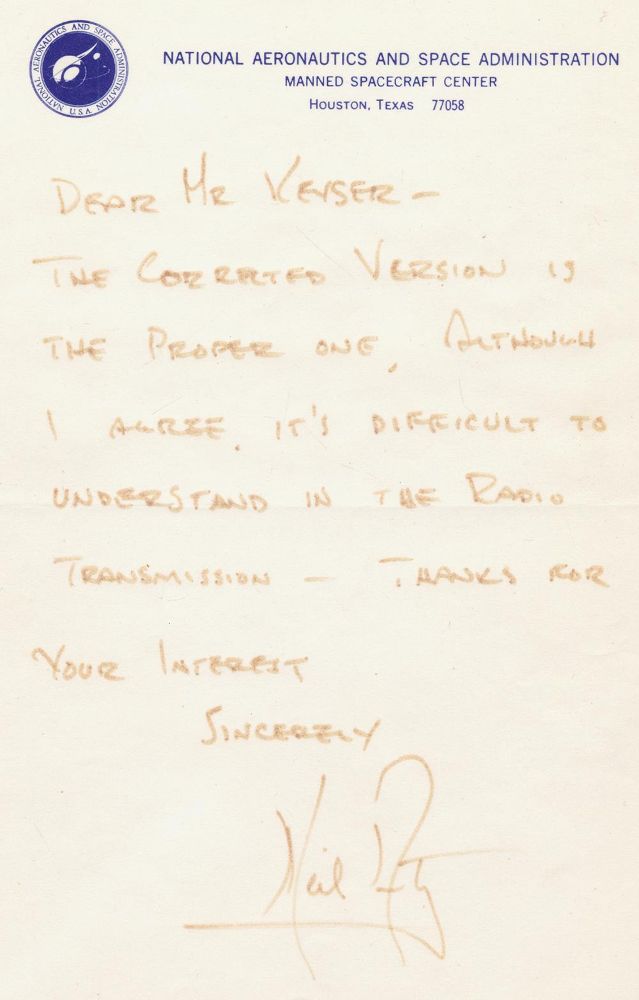 NATIONAL AERONAUTICS AND SPACE ADMINISTRATION
U.S.A.
NATIONAL AERONAUTICS AND SPACE ADMINISTRATION
MANNED SPACECRAFT CENTER
HOUSTON, TEXAS 77058
DEAR MR KEYSER –
THE CORRECTED VERSION IS
THE PROPER ONE, ALTHOUGH
I AGREE, IT'S DIFFICULT TO
UNDERSTAND IN THE RADIO
TRANSMISSION – THANKS FOR
YOUR INTEREST
SINCERELY
Neil